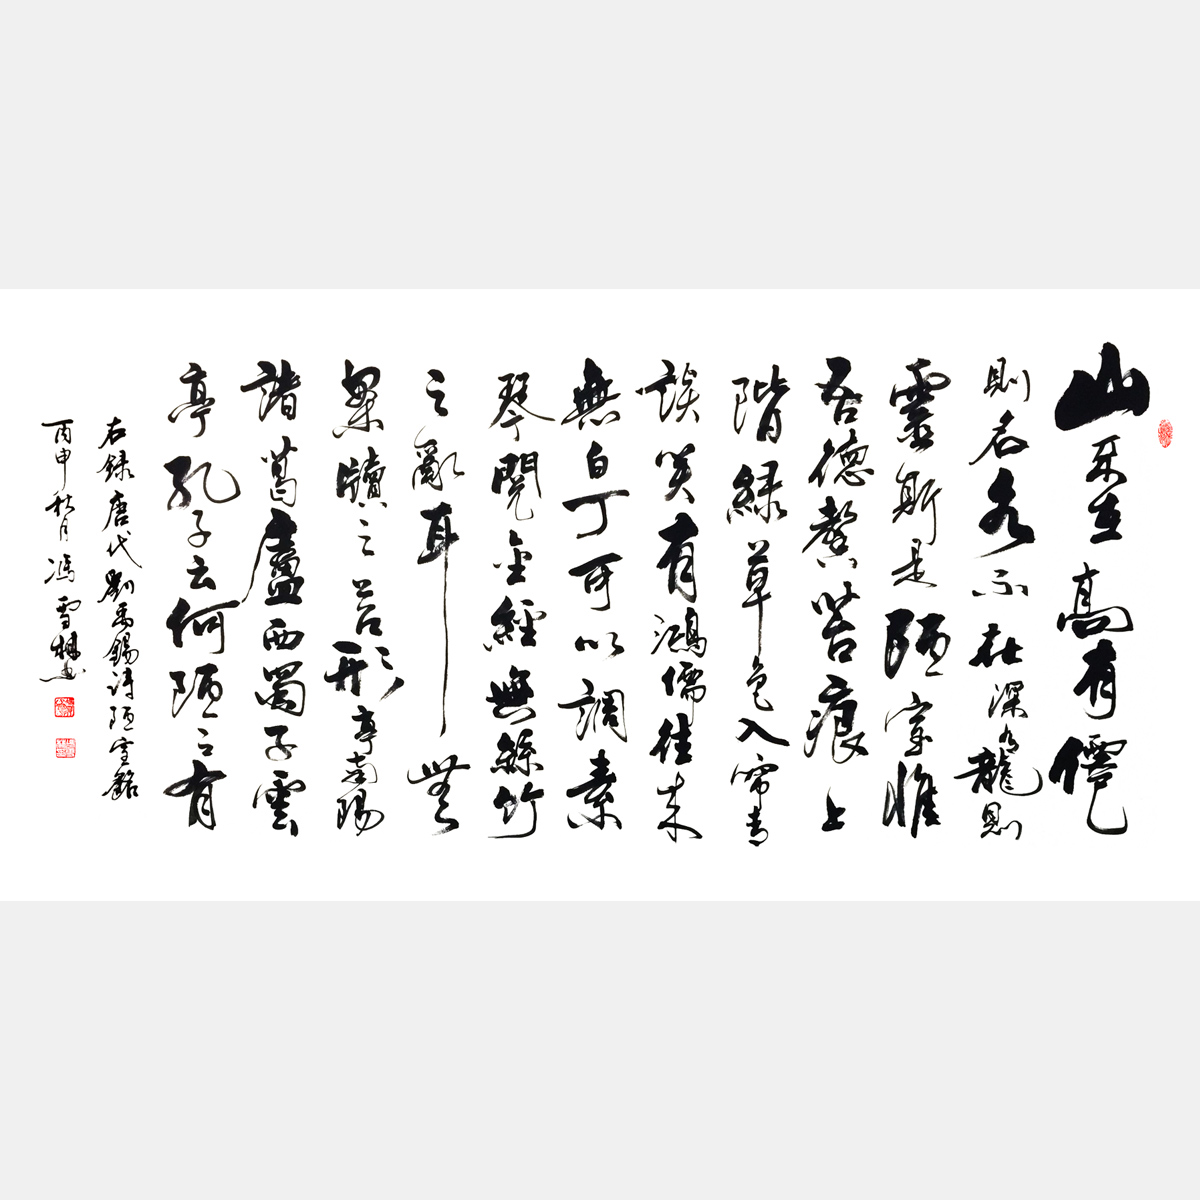 山不在高有僊
則名水不在深有龍則
靈斯是陋室惟
吾德馨苔痕上
階緑草色入帘青
談笑有鴻儒往来
無白丁可以調素
琴閲金經無絲竹
之亂耳無
案牘之勞形亭南陽
諸葛廬西蜀子雲
亭孔子云何陋之有
右録唐代劉禹錫詩陋室銘
丙申秋月馮雪書